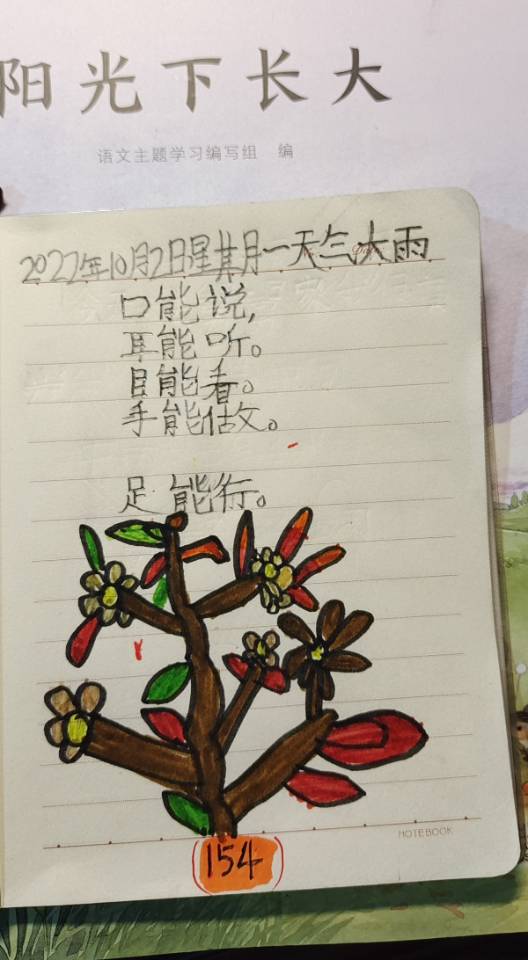 阳光下长大
语文主题学习编写组 编
2022年10月2日星其月一天气大雨
口能说,
耳能听。
目能看。
手能做。
足能行。
NOTEBOOK
154